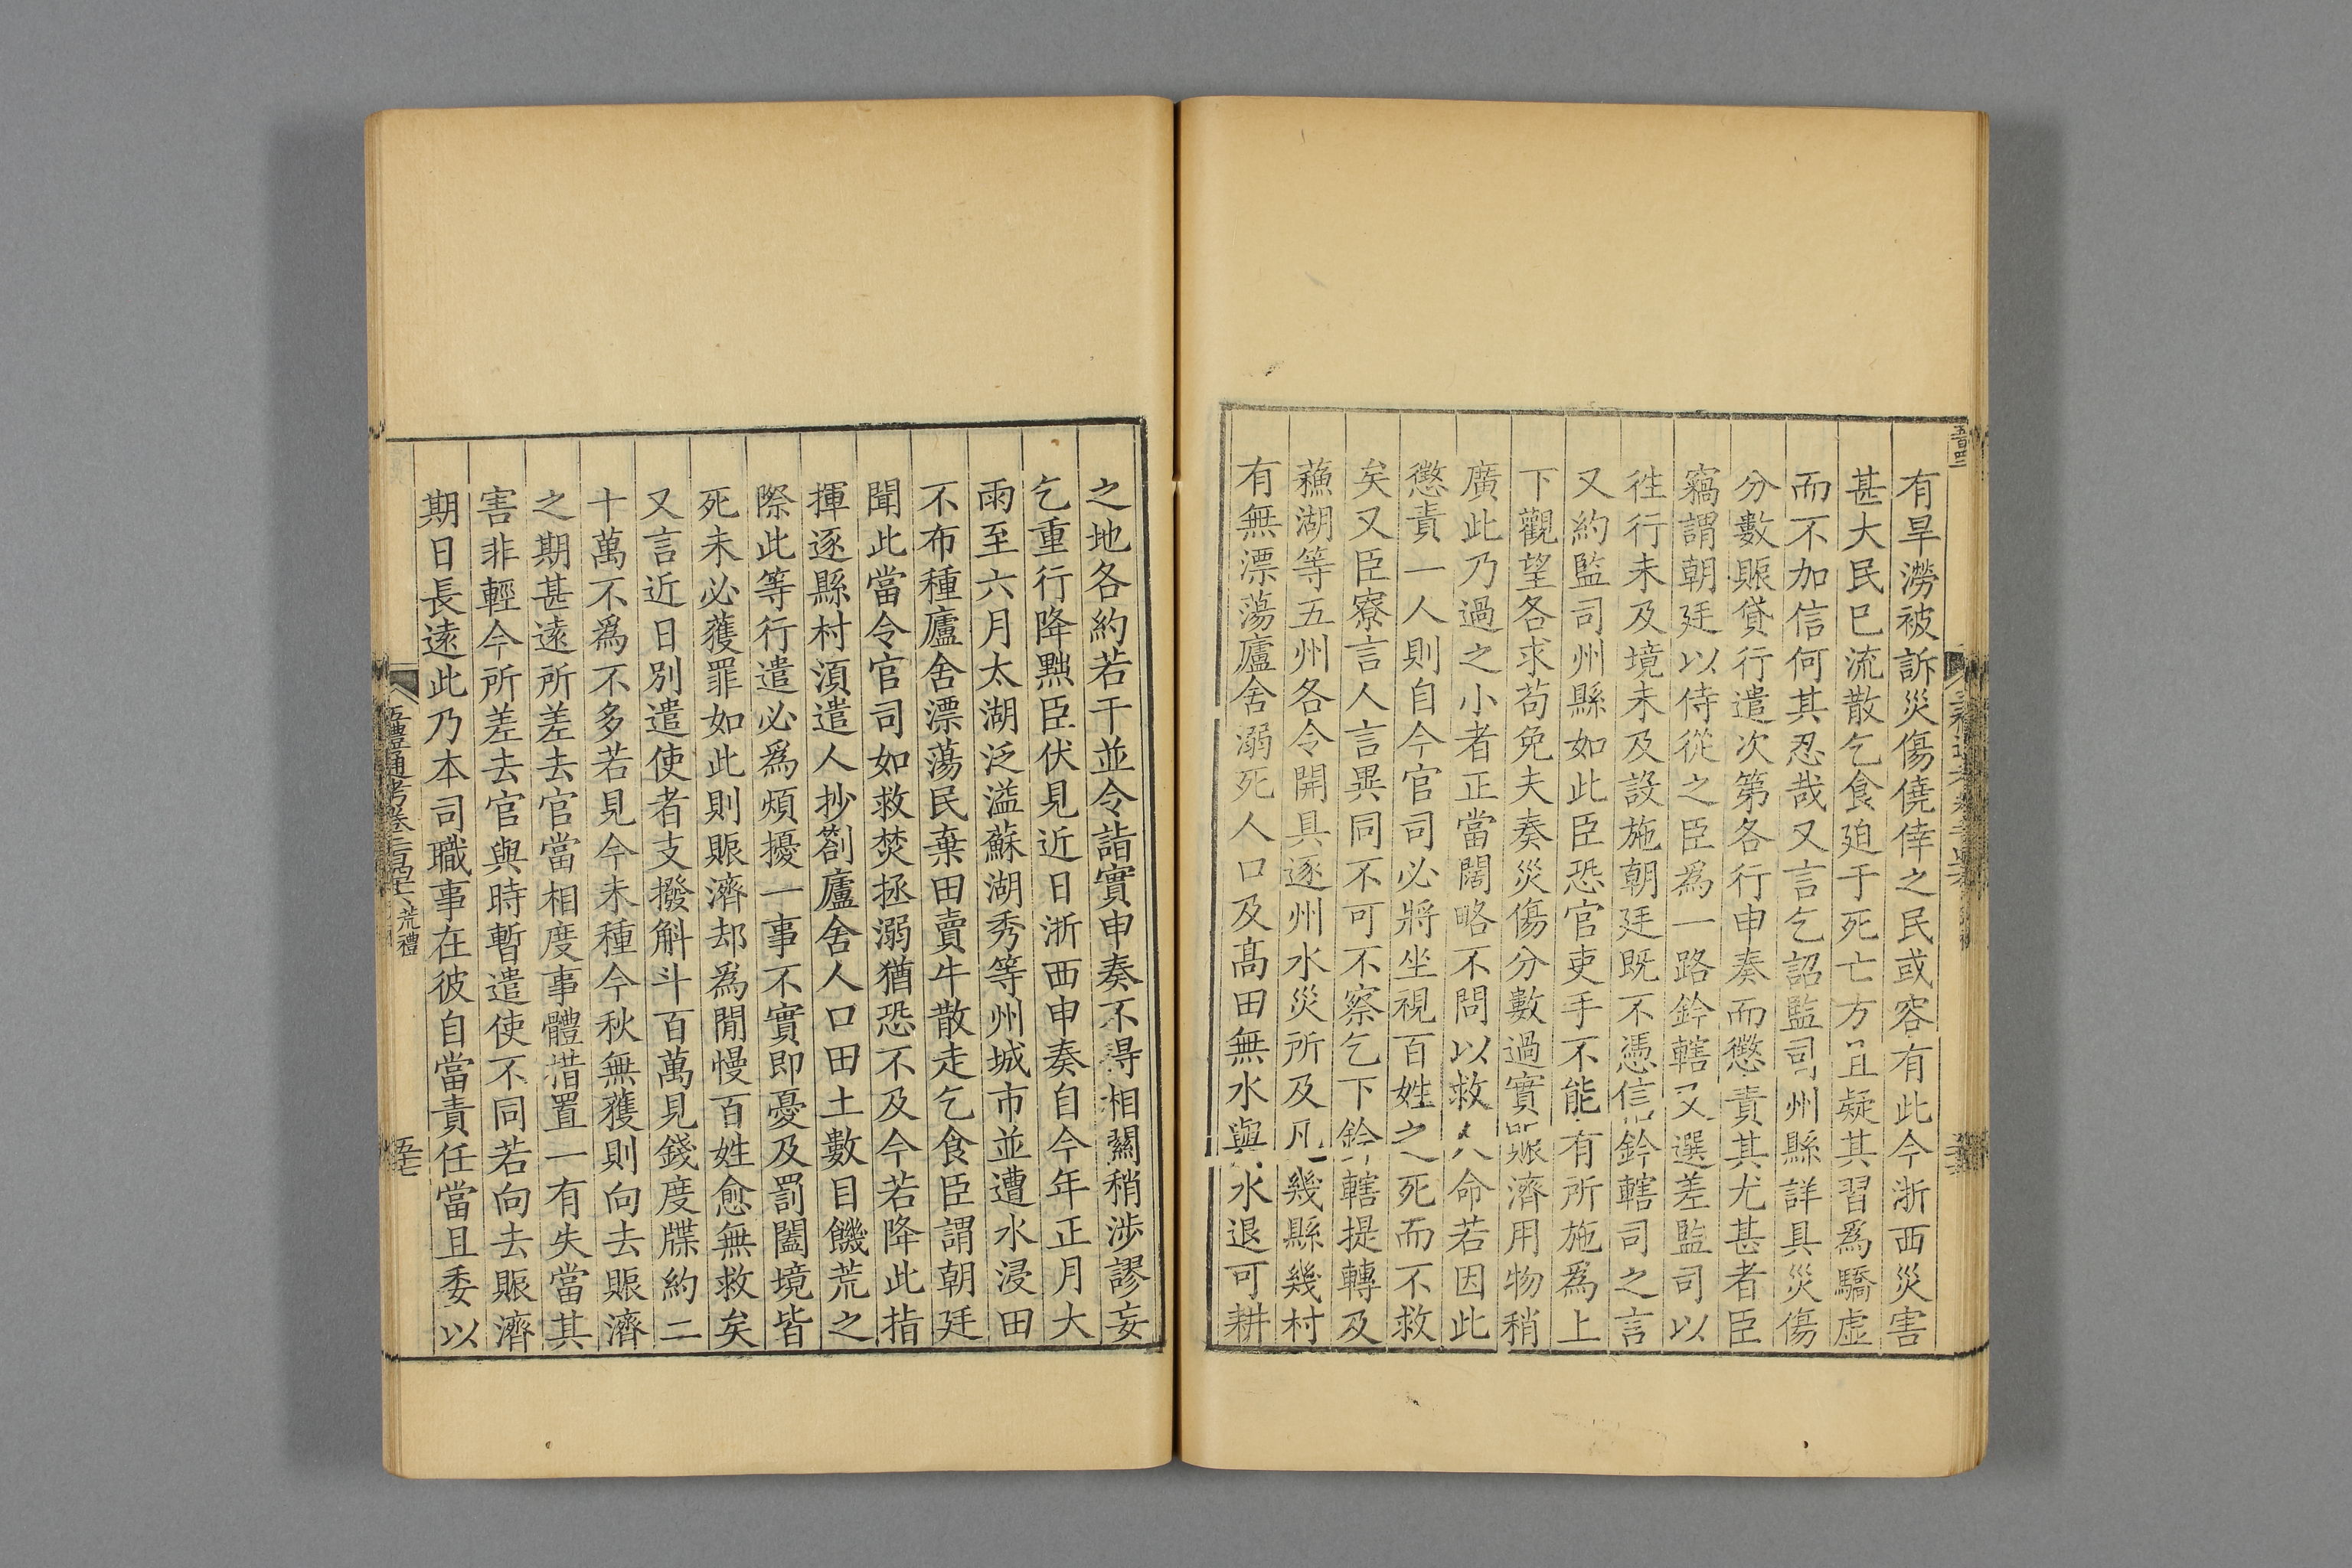 有旱澇被訴災傷僥倖之民或容有此今浙西災害
甚大民巳流散乞食廹于死亡方且疑其習爲驕虛
而不加信何其忍哉又言乞詔監司州縣詳具災傷
分數賑貸行遣次第各行申奏而懲責其尤甚者臣
竊謂朝廷以侍從之臣爲一路鈐轄又選差監司以
徃行未及境未及設施朝廷既不憑信鈐轄司之言
又約監司州縣如此臣恐官吏手不能有所施爲上
下觀望各求苟免夫奏災傷分數過實賑濟用物稍
廣此乃過之小者正當闊略不問以救人命若因此
懲責一人則自今官司必將坐視百姓之死而不救
矣又臣寮言人言異同不可不察乞下鈐轄提轉及
蘓湖等五州各令開具逐州水災所及凡幾縣幾村
有無漂蕩廬舍溺死人口及高田無水與水退可耕
之地各約若干並令詣實申奏不得相關稍涉謬妄
乞重行降黜臣伏見近日浙西申奏自今年正月大
雨至六月太湖泛溢蘇湖秀等州城市並遭水浸田
不布種廬舍漂蕩民棄田賣牛散走乞食臣謂朝廷
聞此當令官司如救焚拯溺猶恐不及今若降此指
揮逐縣村湏遣人抄劄廬舍人口田土數目饑荒之
際此等行遣必爲煩擾一事不實即憂及罰闔境皆
死未必獲罪如此則賑濟却爲閒慢百姓愈無救矣
又言近日別遣使者支撥斛斗百萬見錢度牒約二
十萬不爲不多若見今未種今秋無穫則向去賑濟
之期甚逺所差去官當相度事體措置一有失當其
害非輕今所差去官與時暫遣使不同若向去賑濟
期日長逺此乃本司職事在彼自當責任當且委以
五禮通考卷二百四十八荒禮